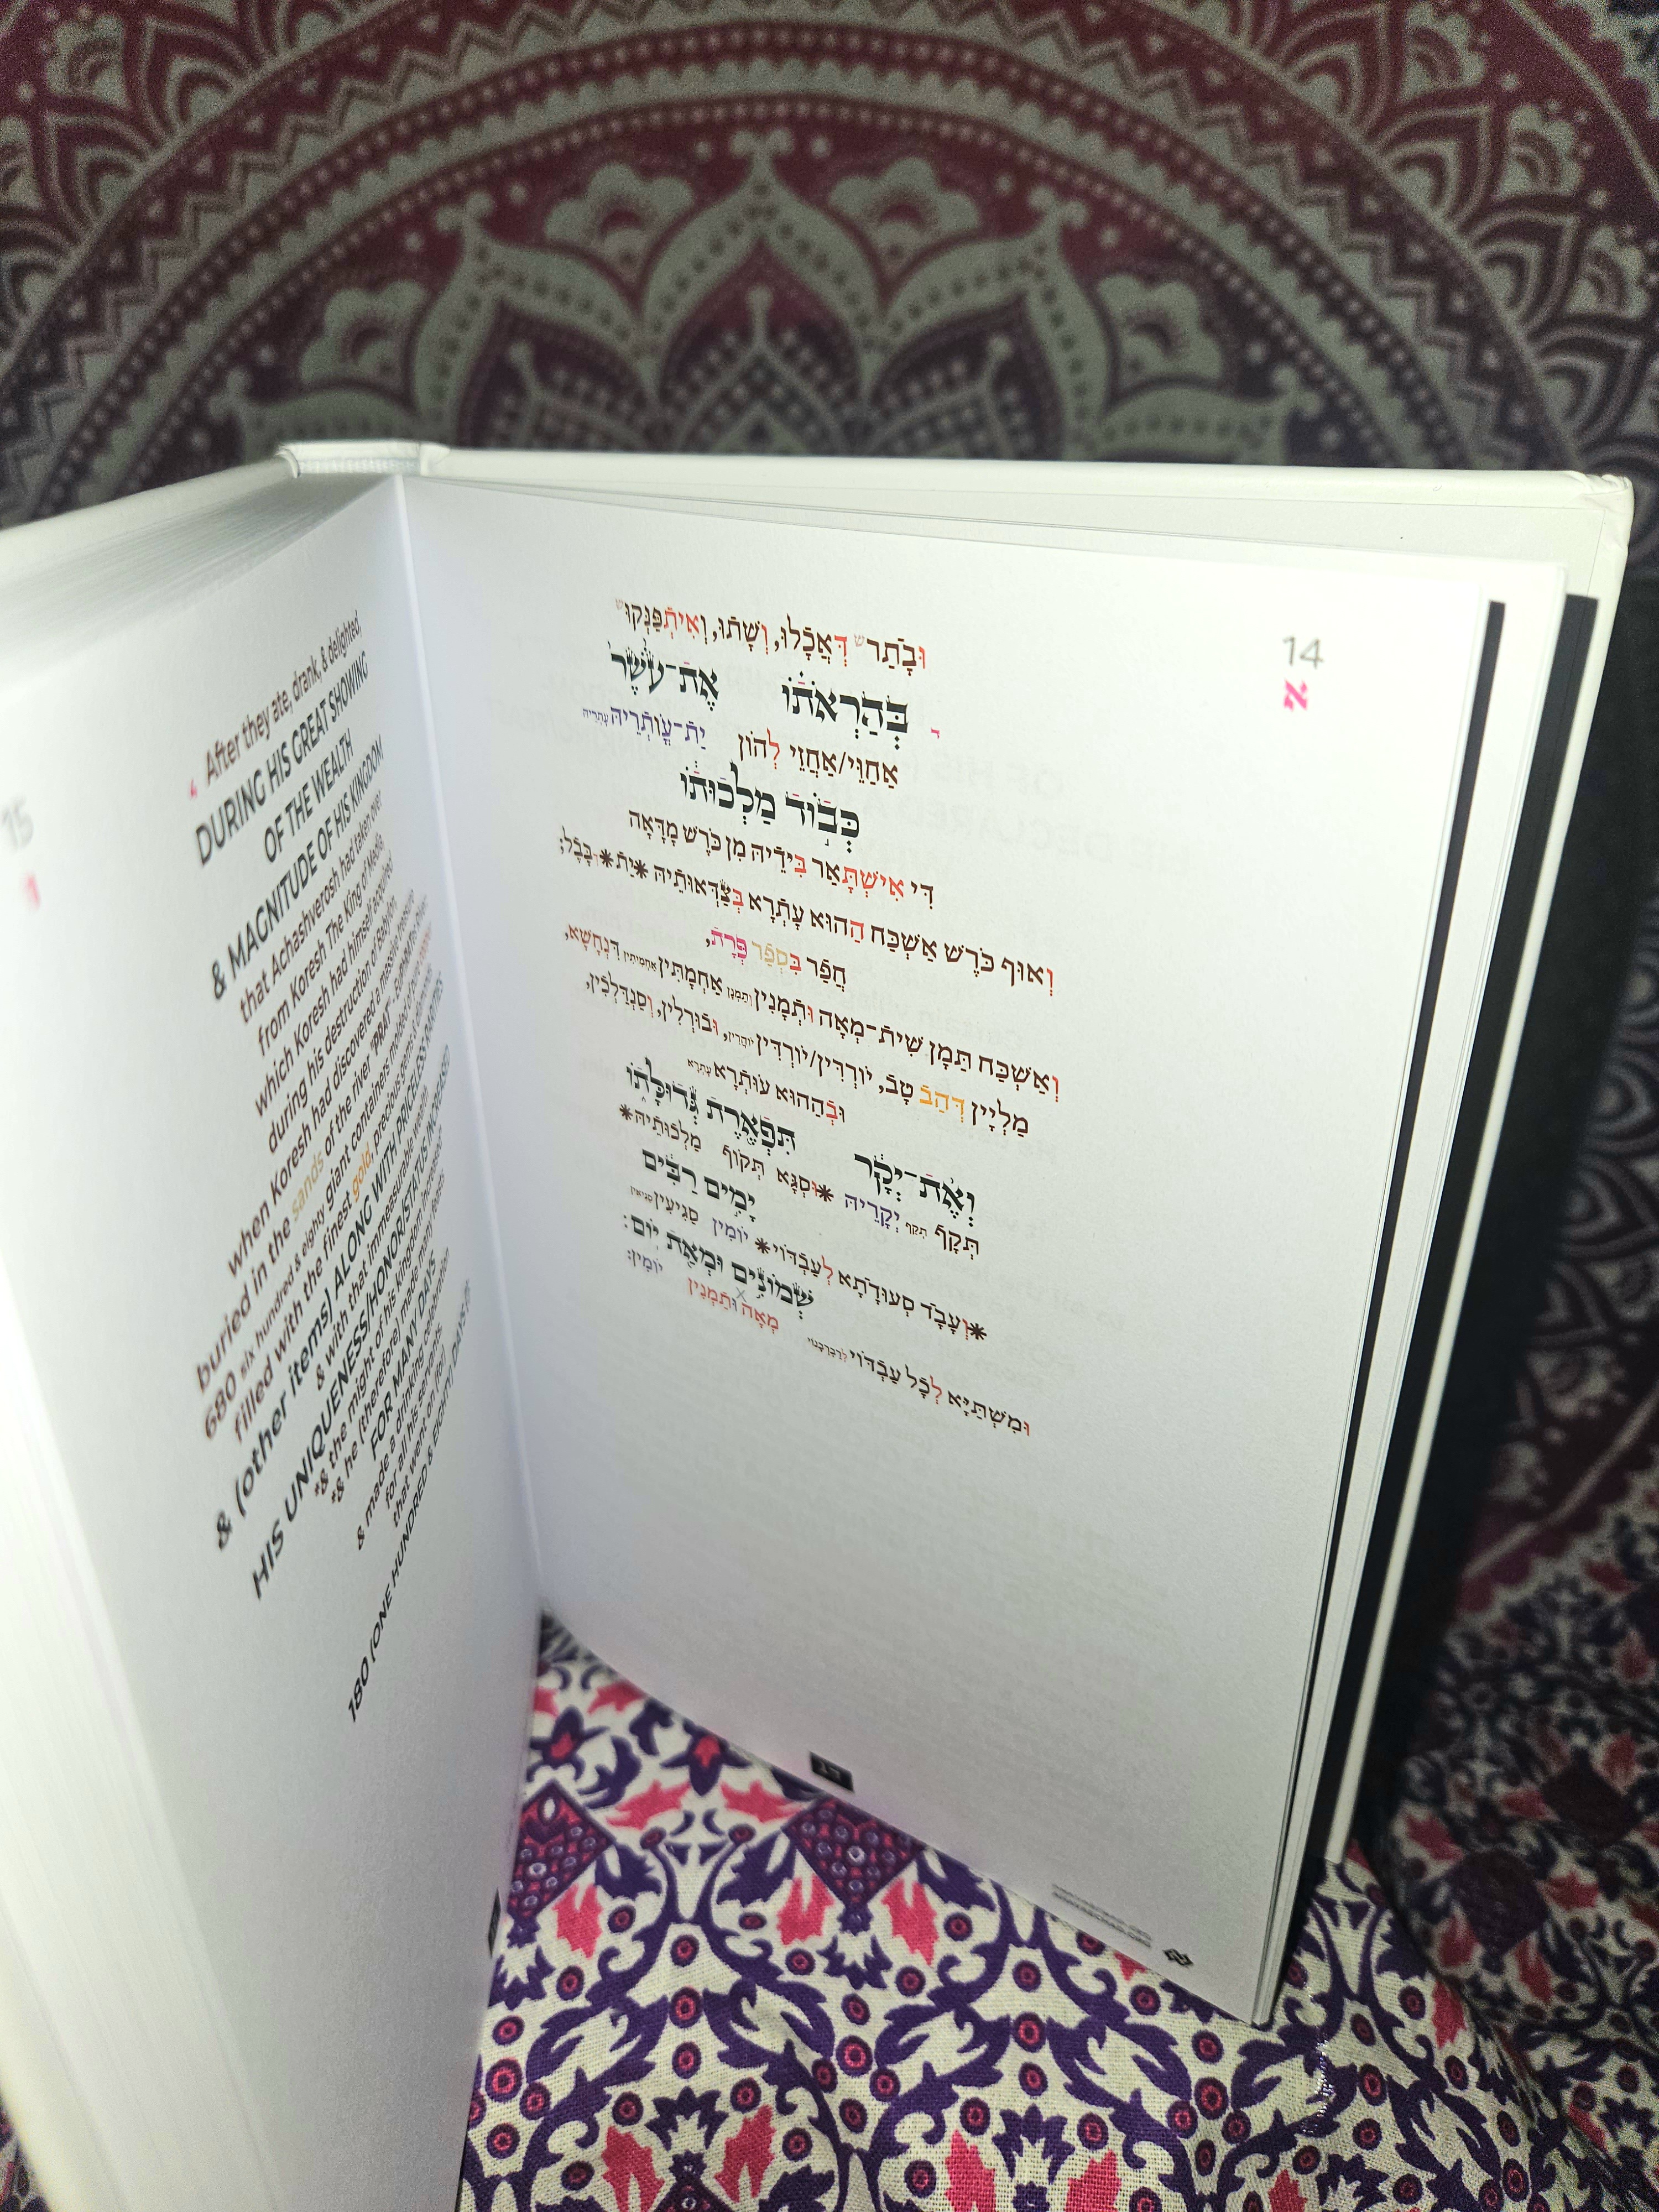 14
א
וּבָתַר דְּאֲכָלוּ, וְשָׁתוּ, וְאִיתְפַּנְּקוּ
ד בְּהַרְאֹתוֹ אֶת־עֹשֶׁר
אַחֲוֵי/אַחֲזֵי לְהוֹן יַת־עֻוֹתְרֵיהּ
כְּבוֹד מַלְכוּתוֹ
דִּי אִישְׁתָּאַר בִּידֵיהּ מִן כֹּרֶשׁ מָדָאָה
וְאוּף כֹּרֶשׁ אַשְׁכַּח הַהוּא עָתְרָא בְּצַדְאוּתֵיהּ *יַת* בָּבֶל;
חֲפַר בִּסְפַר פְּרָת,
וְאַשְׁכַּח תַּמָן שִׁית־מְאָה וּתְמָנִין אַחְמָתִין דִּנְחָשָׁא,
מַלְיָין דְּהַב טָב, יוֹרְדִין/יוֹרְדִין, וּבוּרְלִין, וְסַנְדַּלְכִין,
וּבְהַהוּא עוּתְרָא
וְאֶת־יְקָר תִּפְאֶרֶת גְּדוּלָּתוֹ
תְּקָף יְקָרֵיהּ *וּסְגָא תְּקוֹף מַלְכוּתֵיהּ*
יָמִים רַבִּים
*וַעֲבַד סְעוּדָתָא לְעַבְדּוֹי* יוֹמִין סַגִּיעִין
שְׁמוֹנִים וּמְאַת יוֹם:
מְאָה וּתְמָנִין יוֹמִין:
וּמִשְׁתַּיָּא לְכָל עַבְדּוֹי
15
א
After they ate, drank, & delighted,
DURING HIS GREAT SHOWING
OF THE WEALTH
& MAGNITUDE OF HIS KINGDOM
that Achashverosh had taken over
from Koresh The King of Media
which Koresh had himself acquired
during his destruction of Babylon
when Koresh had discovered a massive treasure
buried in the sands of the river "PRAT"
680 six hundred & eighty giant containers made of
filled with the finest gold, precious
& (other items) ALONG WITH PRICELESS RARITIES
& with that immeasurable wealth
HIS UNIQUENESS/HONOR/STATUS INCREASED
*& the might of his kingdom increased*
*& he (therefore) made many feasts
FOR MANY DAYS
& made a drinking celebration
for all his servants
that went on (for)
180 (ONE HUNDRED & EIGHTY) DAYS